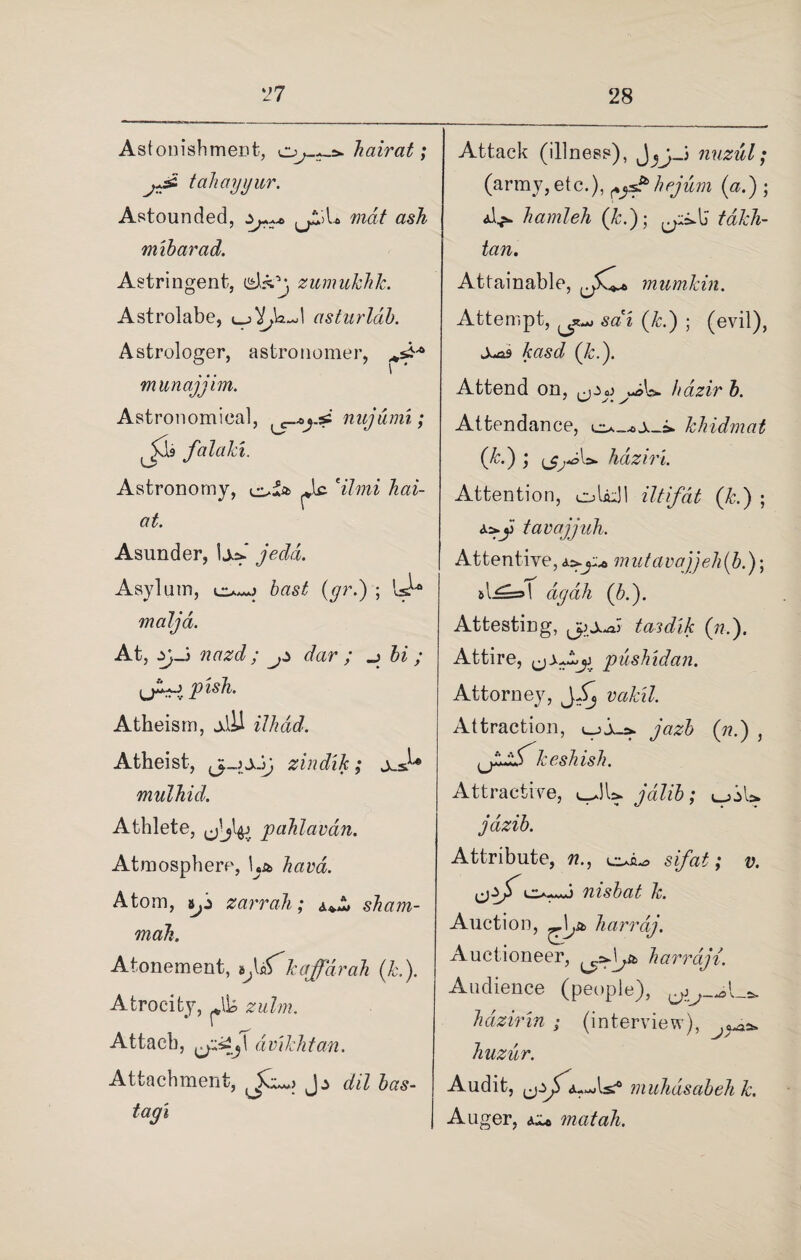 27
Astonishment, حيرت hairat;
تحير tahayyur.
Astounded, مات ش ميبرد mát ash
mibarad.
Astringent, زمخك zumukhk.
Astrolabe, اسطرلاب asturláb.
Astrologer, astronomer, منجم
munajjim.
Astronomical, نجومي nujúmí;
فلكي falakí.
Astronomy, علم هئت 'ilmi hai-
at.
Asunder, جدا jedá.
Asylum, بست bast (gr.); ملجا
maljá.
At, نزد nazd; در dar; بـ bi;
پيش písh.
Atheism, الحاد ilhád.
Atheist, زنديق zindík; ملحد
mulhid.
Athlete, پهلوان pahlaván.
Atmosphere, هوا havá.
Atom, ذره zarrah; شمه sham-
mah.
Atonement, كفاره kaffárah (k.).
Atrocity, ظلم zulm.
Attach, آويختن ávíkhtan.
Attachment, دل بستگي dil bas-
tagí
28
Attack (illness), نزول nuzúl;
(army, etc.), هجوم hejúm (a.);
حمله hamleh (k.); تاختن tákh-
tan.
Attainable, ممكن mumkin.
Attempt, سعي sa'í (k.); (evil),
قصد kasd (k.).
Attend on, حاضر بودن házir b.
Attendance, خدمت khidmat
(k.); حاضري házirí.
Attention, التفات iltifát (k.);
توجه tavajjuh.
Attentive, متوجه mutavajjeh (b.);
آگاه ágáh (b.).
Attesting, تصديق tasdík (n.).
Attire, پوشيدن púshídan.
Attorney, وكيل vakíl.
Attraction, جذب jazb (n.),
كشش keshish.
Attractive, جالب jálib; جاذب
jázib.
Attribute, n., صفت sifat; v.
نسبت كردن nisbat k.
Auction, هراج harráj.
Auctioneer, هراجي harrájí.
Audience (people), حاضرين
házirín; (interview), حضور
huzúr.
Audit, محاسبه كردن muhásabeh k.
Auger, مته matah.